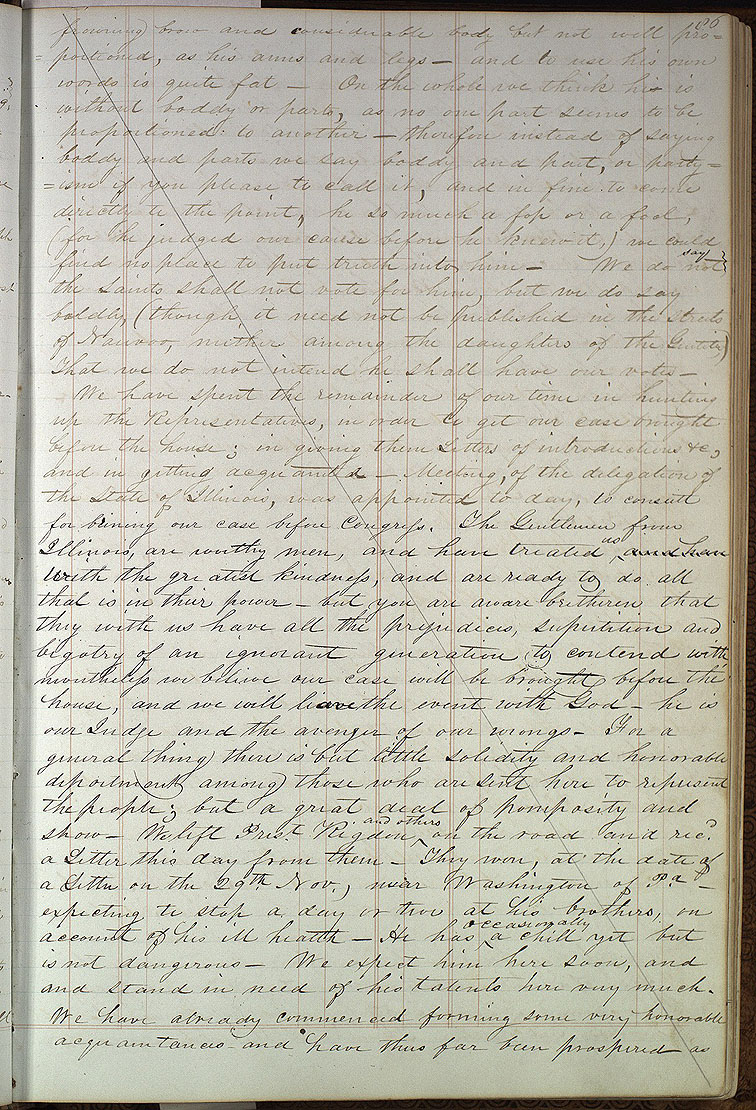 86
frowning) brow and considerable body but not well pro=
=portioned, as his arms and legs — and to use his own
words is quite fat — On the whole we think he is
without boddy or parts, as no one part seems to be
proportioned to another — therefore instead of saying
boddy and parts we say boddy and part, or party=
=ism if you please to call it, and in fine to come
directly to the point, he so much a fop or a fool,
(for he judged our cause before he knew it,) we could
find no place to put truth into him — We do not say
the Saints shall not vote for him, but we do say
boldly, (though it need not be published in the Streets
of Nauvoo, neither among the daughters of the Gentiles)
That we do not intend he shall have our votes —
We have spent the remainder of our time in hunting
up the Representatives, in order to get our case brought
before the house; in giving them Letters of introductions &c,
and in getting acquainted — Meeting, of the delegation of
the State of Illinois, was appointed to day, to consult
for brining our case before Congress. The Gentlemen from
Illinois, are worthy men, and have treated us, and have
with the greatest kindness, and are ready to do all
that is in their power — but you are aware bretheren that
they with us have all the prejudices, supertition and
bigotry of an ignorant generation to contend with
nevertheless we believe our case will be brought before the
house, and we will leave the event with God — he is
our Judge and the avenger of our wrongs — For a
general thing there is but little solidity and honorable
deportment among those who are sent here to represent
the people; but a great deal of pomposity and
show — We left Prest. Rigdon and others on the road and recd.
a Letter this day from them — They were, at the date of
a Letter on the 29th Nov., near Washington of Pa —
expecting to stop a day or two at his brothers, on
account of his ill health — He has occasionally a chill yet but
is not dangerous — We expect him here soon, and
and stand in need of his talents here very much.
We have already commenced forming some very honorable
acquaintances — and have thus far been prospered as